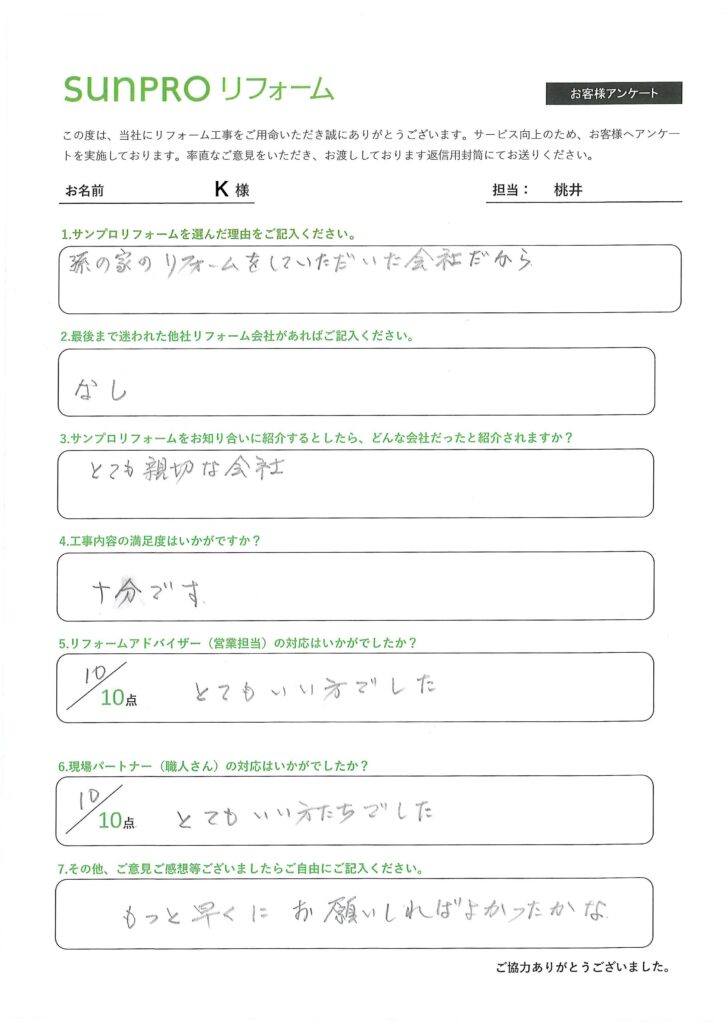 sunPRO リフォーム
お客様アンケート
この度は、当社にリフォーム工事をご用命いただき誠にありがとうございます。サービス向上のため、お客様へアンケー
トを実施しております。率直なご意見をいただき、お渡ししております返信用封筒にてお送りください。
お名前 K 様 担当： 桃井
1.サンプロリフォームを選んだ理由をご記入ください。
孫の家のリフォームをしていただいた会社だから
2.最後まで迷われた他社リフォーム会社があればご記入ください。
なし
3.サンプロリフォームをお知り合いに紹介するとしたら、どんな会社だったと紹介されますか？
とても親切な会社
4.工事内容の満足度はいかがですか？
十分です
5.リフォームアドバイザー（営業担当）の対応はいかがでしたか？
10/10点 とてもいい方でした
6.現場パートナー（職人さん）の対応はいかがでしたか？
10/10点 とてもいい方たちでした
7.その他、ご意見ご感想等ございましたらご自由にご記入ください。
もっと早くに お願いしればよかったかな
ご協力ありがとうございました。